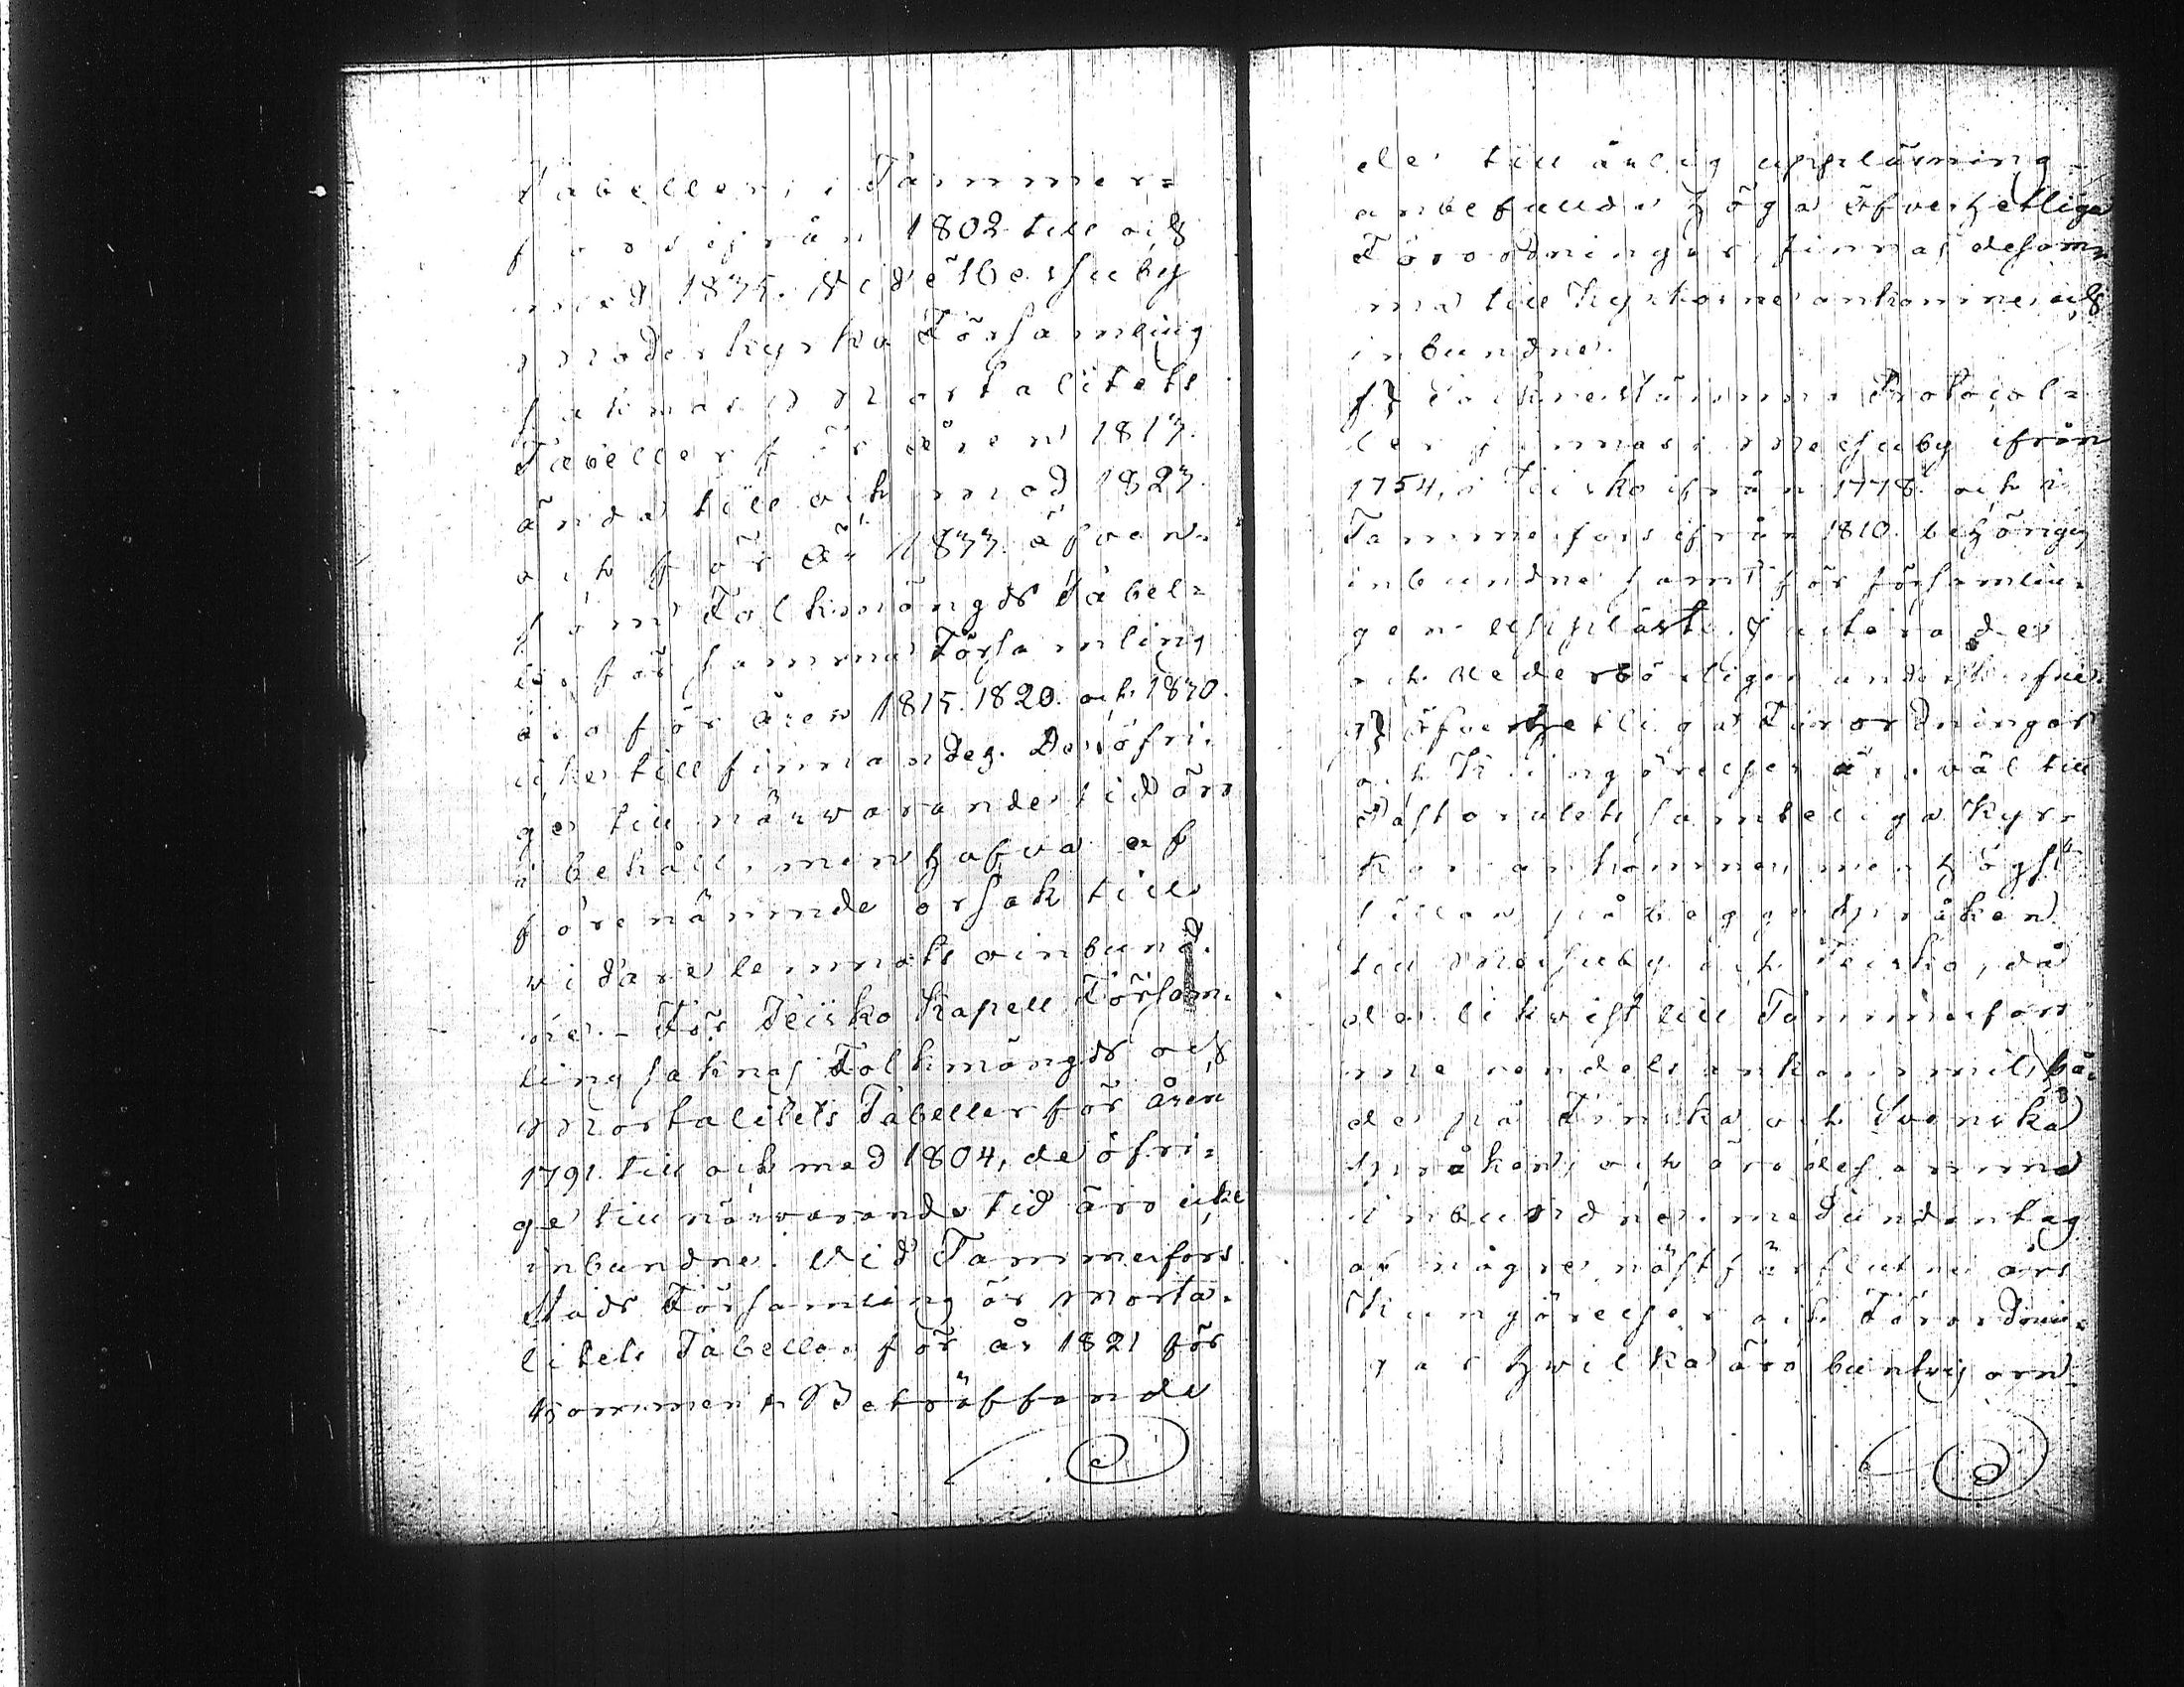 Tabeller, i Tammer=
fors ifrån 1802 till och
med 1835. Vid Messuby
Moderkyrko Församling
saknas Mortalitets
Tabeller för åren 1813.
ända till och med 1823.
och för år 1833. äfven-
som Folkmängds Tabel=
ler för samma Församling
äro för åren 1815. 1820. och 1830.
icke till finnandes. De öfri-
ge till närwarande tid äro
i behåll, men hafva af
förenämnde orsak till
vidare lemnats oinbund-
ne. – För Teisko Kapell Försam-
ling saknas Folkmängds och
Mortalitets Tabeller för åren
1791. till och med 1804, de öfri=
ge till närwarande tid äro icke
inbundne. Vid Tammerfors
Stads Församling är Morta-
litets Tabellen för år 1821 för
kommen. Beträffande
de till årlig uppläsning
anbefallda höga öfverhetliga
Förordningar, finnas desam
ma till Kyrkorne ankomne, och
inbundne.
Sockne stämmo Protocol=
ler finnas i Messuby ifrån
1754, i Teisko ifrån 1778. och i
Tammerfors ifrån 1810. behörigen
inbundne samt för församlin-
gen uppläste, Justerade
och vederbörligen underskrifne.
Öfverhetliga Förordningar
och Kungörelser äro väl till
Pastoratets samteliga Kyr-
kor ankomne, men högst
sällan på begge språken
till Messuby och Teisko, då
de likwist till Tammerfors
mera endels ankommit, bå-
de på Finska och Svenska
språken, och äro desamma
inbundne, med undantag
af några näst förflutne års
Kungörelser och Förordnin-
gar hwilka äro buntvis om-